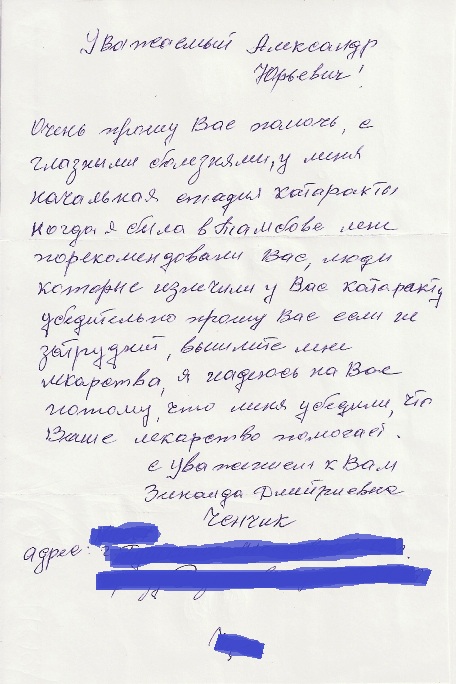 Уважаемый Александр
Юрьевич!
Очень прошу Вас помочь, с
глазными болезнями, у меня
начальная стадия катаракты
когда я была в Тамбове мне
порекомендовали Вас, люди
которые излечили у Вас катаракту
убедительно прошу Вас если не
затруднит, вышлите мне
лекарства, я надеюсь на Вас
потому, что меня убедили, что
Ваше лекарство помогает.
с уважением к Вам
Зинаида Дмитриевна
Ченчик
адрес: